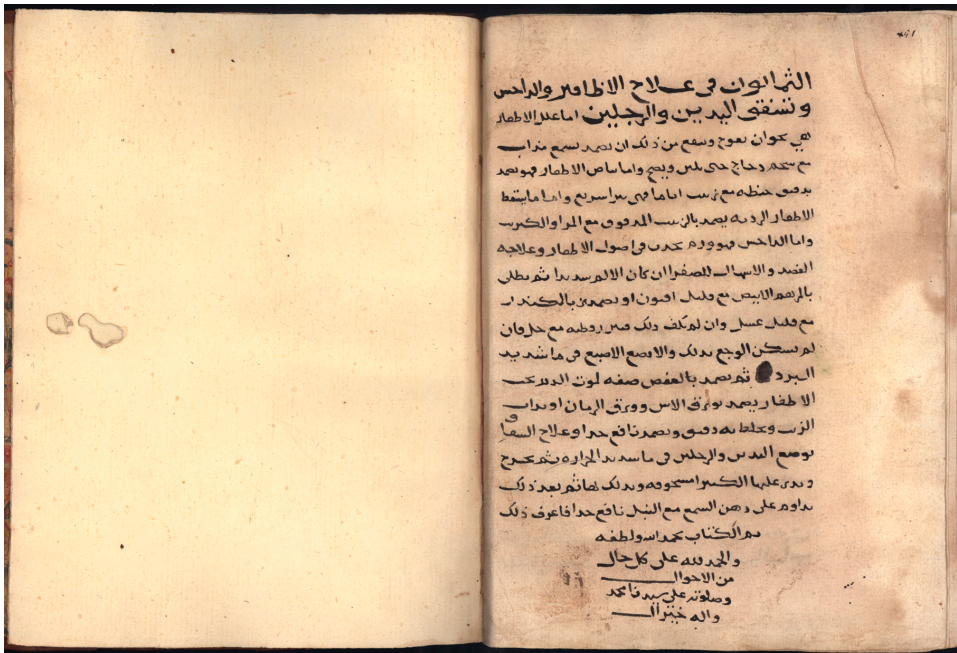 ١٥١
الثمانون في علاج الاظافير والداحس
وتشقق اليدين والرجلين اما علل الاظفار
فهي نحو ان تعوج وينفع من ذلك ان يضمد بشمع مذاب
مع شحم دجاج حتى يلين ويصح واما بياض الاظفار فهو يضمد
بدقيق حنطه مع زيت اياما فهي تبرا سريع واما ما يسقط
الاظفار الرديه يضمد بالزبيب المدقوق مع المر او الكبريت
واما الداحس فهو ورم يحدث في اصول الاظفار وعلاجه
الفصد والاسهال للصفرا ان كان الالم شديدا ثم يطلى
بالمرهم الابيض مع قليل افيون او يضمد بالكندر
مع قليل عسل وان لم يكف ذلك مع خل فان
لم يسكن الوجع بذلك والا يضع الاصبع في ما شديد
البرد ثم يضمد بالعفص صفه لموت الدم تحت
الاظفار يضمد بورق الاس وورق الرمان او يذاب
الزفت ويخلط به دقيق ويضمد نافع جدا وعلاج الشقاق
توضع اليدين والرجلين في ما شديد الحراره ثم تخرج
ويذر عليها الكثيرا مسحوقه ويدلك بها ثم بعد ذلك
يداوم على دهن الشمع مع النيل نافع جدا فاعرف ذلك
تم الكتاب بحمد الله ولطفه
والحمد لله على كل حال
من الاحوال
وصلوته على سيدنا محمد
واله خير آل